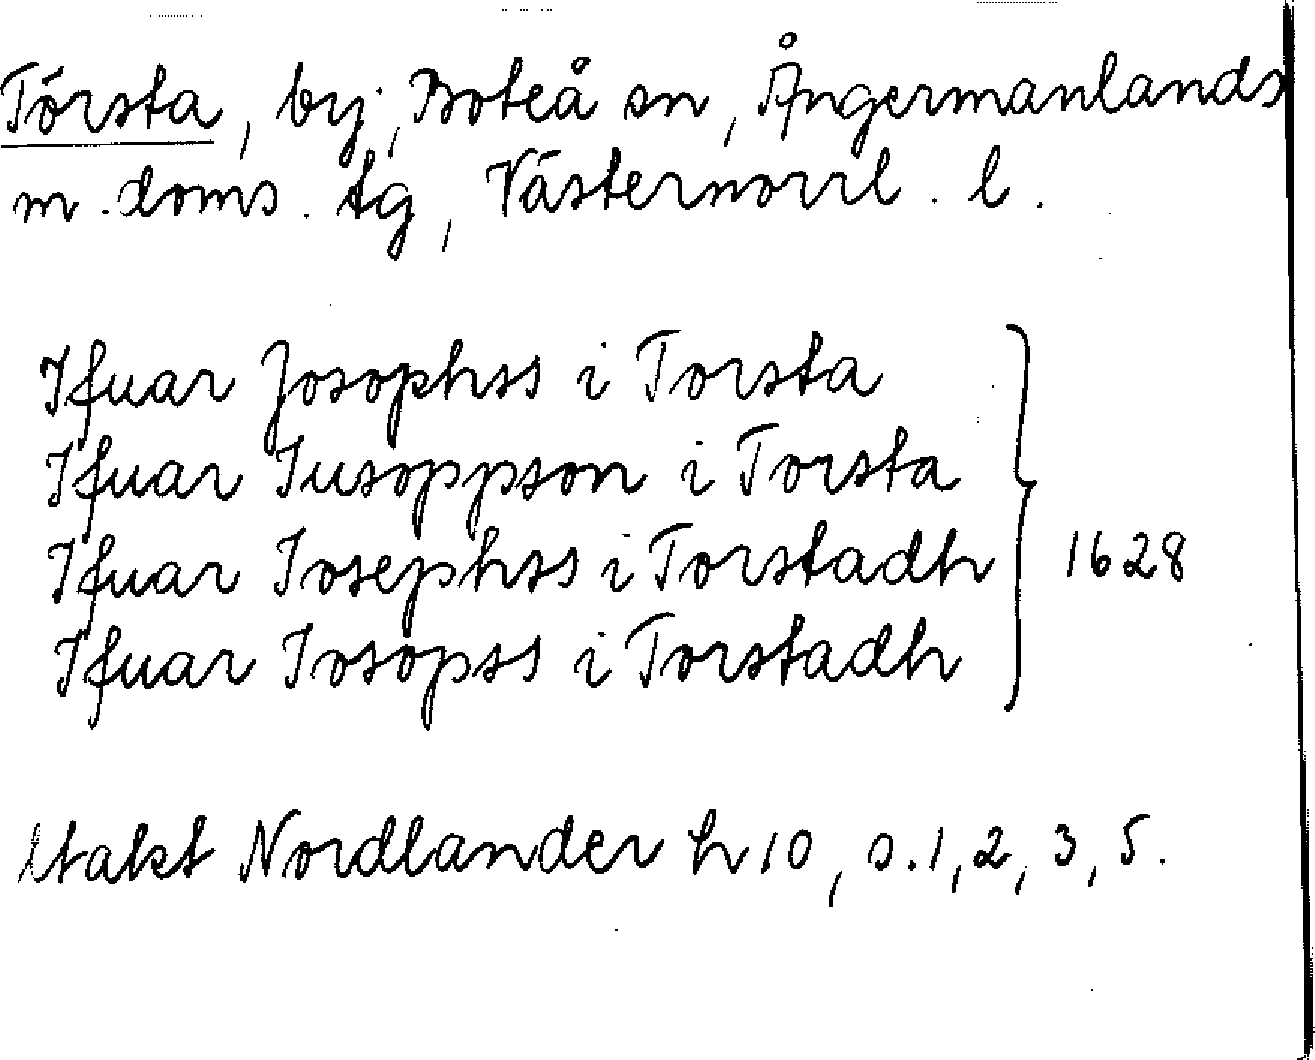 Törsta, by, Boteå sn, Ångermanlands
m. doms. tg, Västernorrl. l.
Ifuar Josophss i Torsta
Ifuar Iusoppson i Torsta
Ifuar Iosephss i Torstadh } 1628
Ifuar Iosopss i Torstadh
Utakt Nordlander h 10, s. 1, 2, 3, 5.